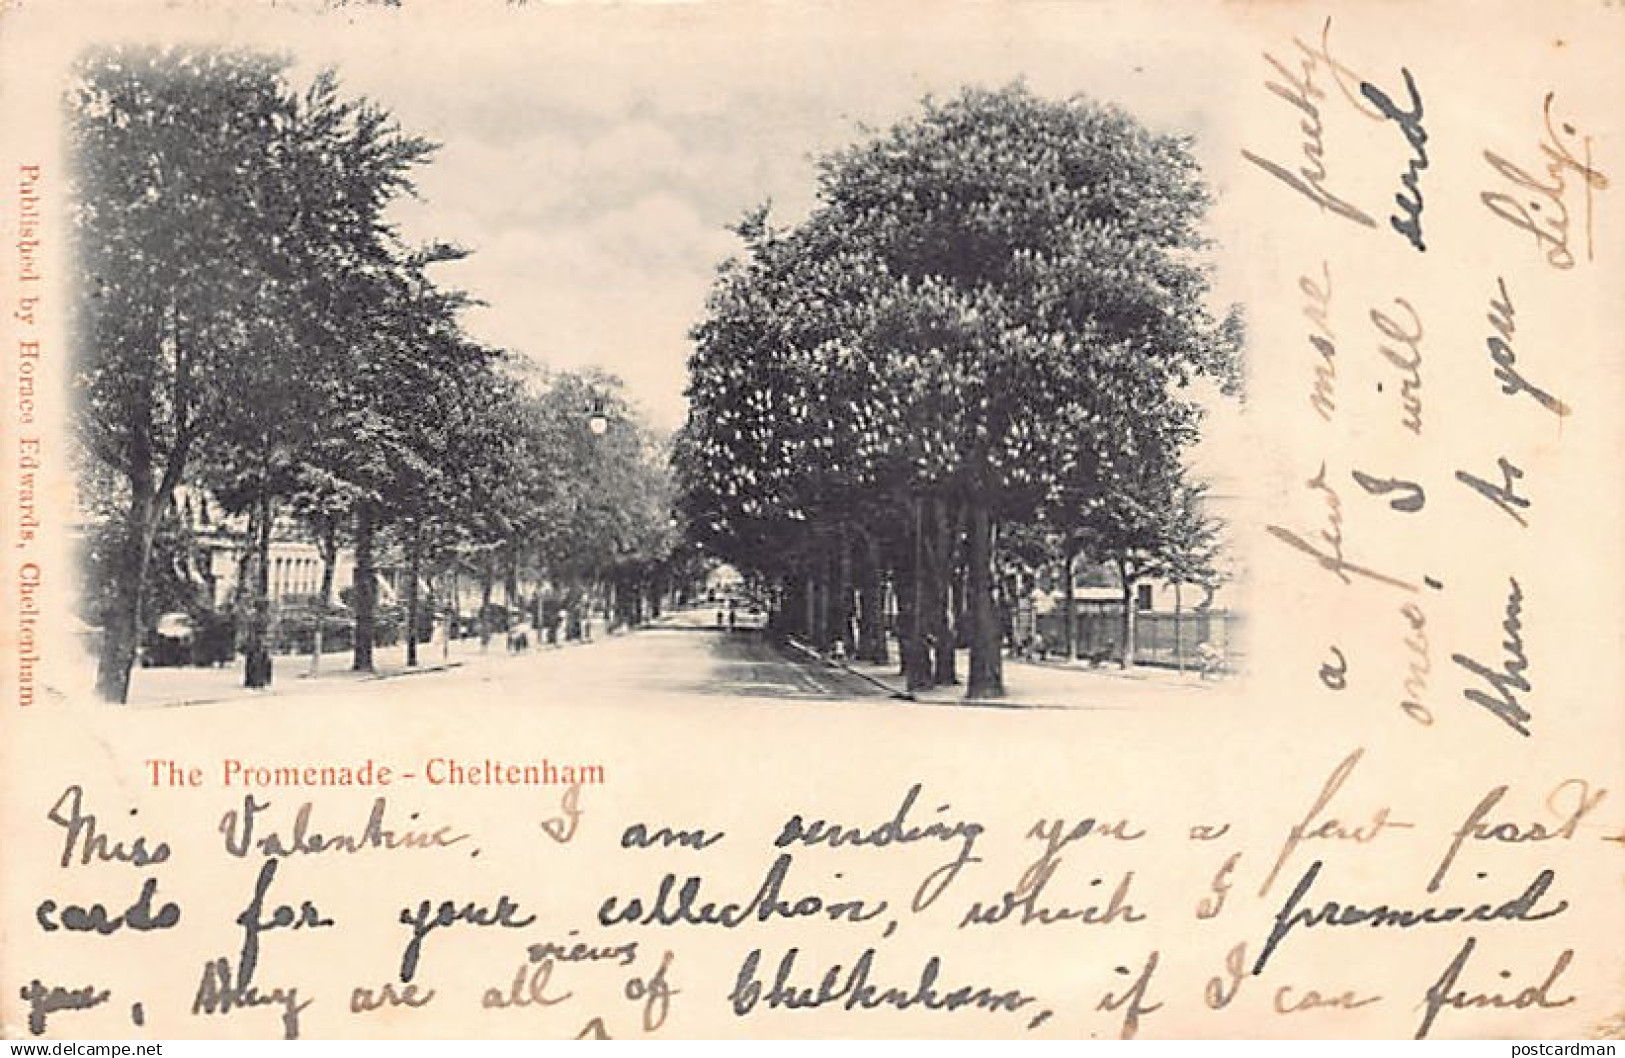 Published by Horace Edwards, Cheltenham
The Promenade - Cheltenham
Miss Valentine, I am sending you a few post-
cards for your collection, which I promised
you, they are all views of Cheltenham, if I can find
a few more pretty
ones, I will send
them to you
Lily.
© delcampe.net
postcardman